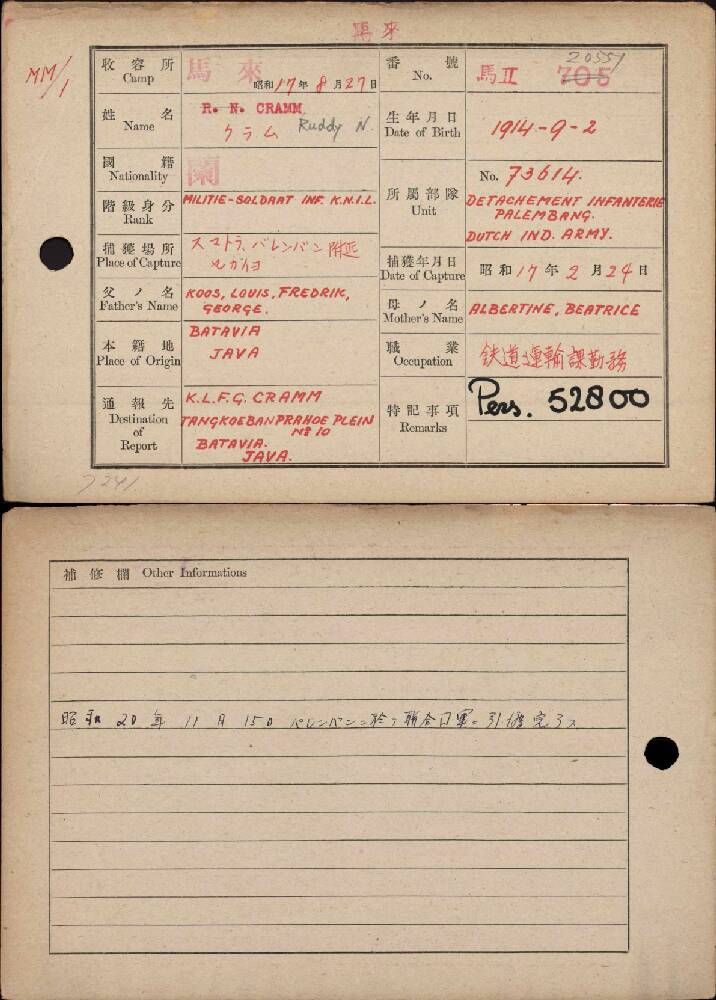 馬來
MM/1
收容所 Camp
馬來
昭和17年8月27日
番號 No.
馬II 705
20551
姓名 Name
R. N. CRAMM.
クラム Ruddy N.
生年月日 Date of Birth
1914-9-2
國籍 Nationality
蘭
所屬部隊 Unit
No. 73614.
DETACHEMENT INFANTERIE
PALEMBANG.
DUTCH IND. ARMY.
階級身分 Rank
MILITIE-SOLDAAT INF. K.N.I.L.
捕獲場所 Place of Capture
スマトラ、パレンバン附近
捕獲年月日 Date of Capture
昭和17年2月24日
父ノ名 Father's Name
KOOS, LOUIS, FREDRIK,
GEORGE.
母ノ名 Mother's Name
ALBERTINE, BEATRICE
本籍地 Place of Origin
BATAVIA
JAVA
職業 Occupation
鉄道運輸課勤務
通報先 Destination of Report
K.L.F.G. CRAMM
TANGKOEBANPRAHOE PLEIN
No 10
BATAVIA.
JAVA.
特記事項 Remarks
Pers. 52800
7241
補修欄 Other Informations
昭和20年11月15日 パレンバンニ於テ聯合国軍ニ引渡完了ス